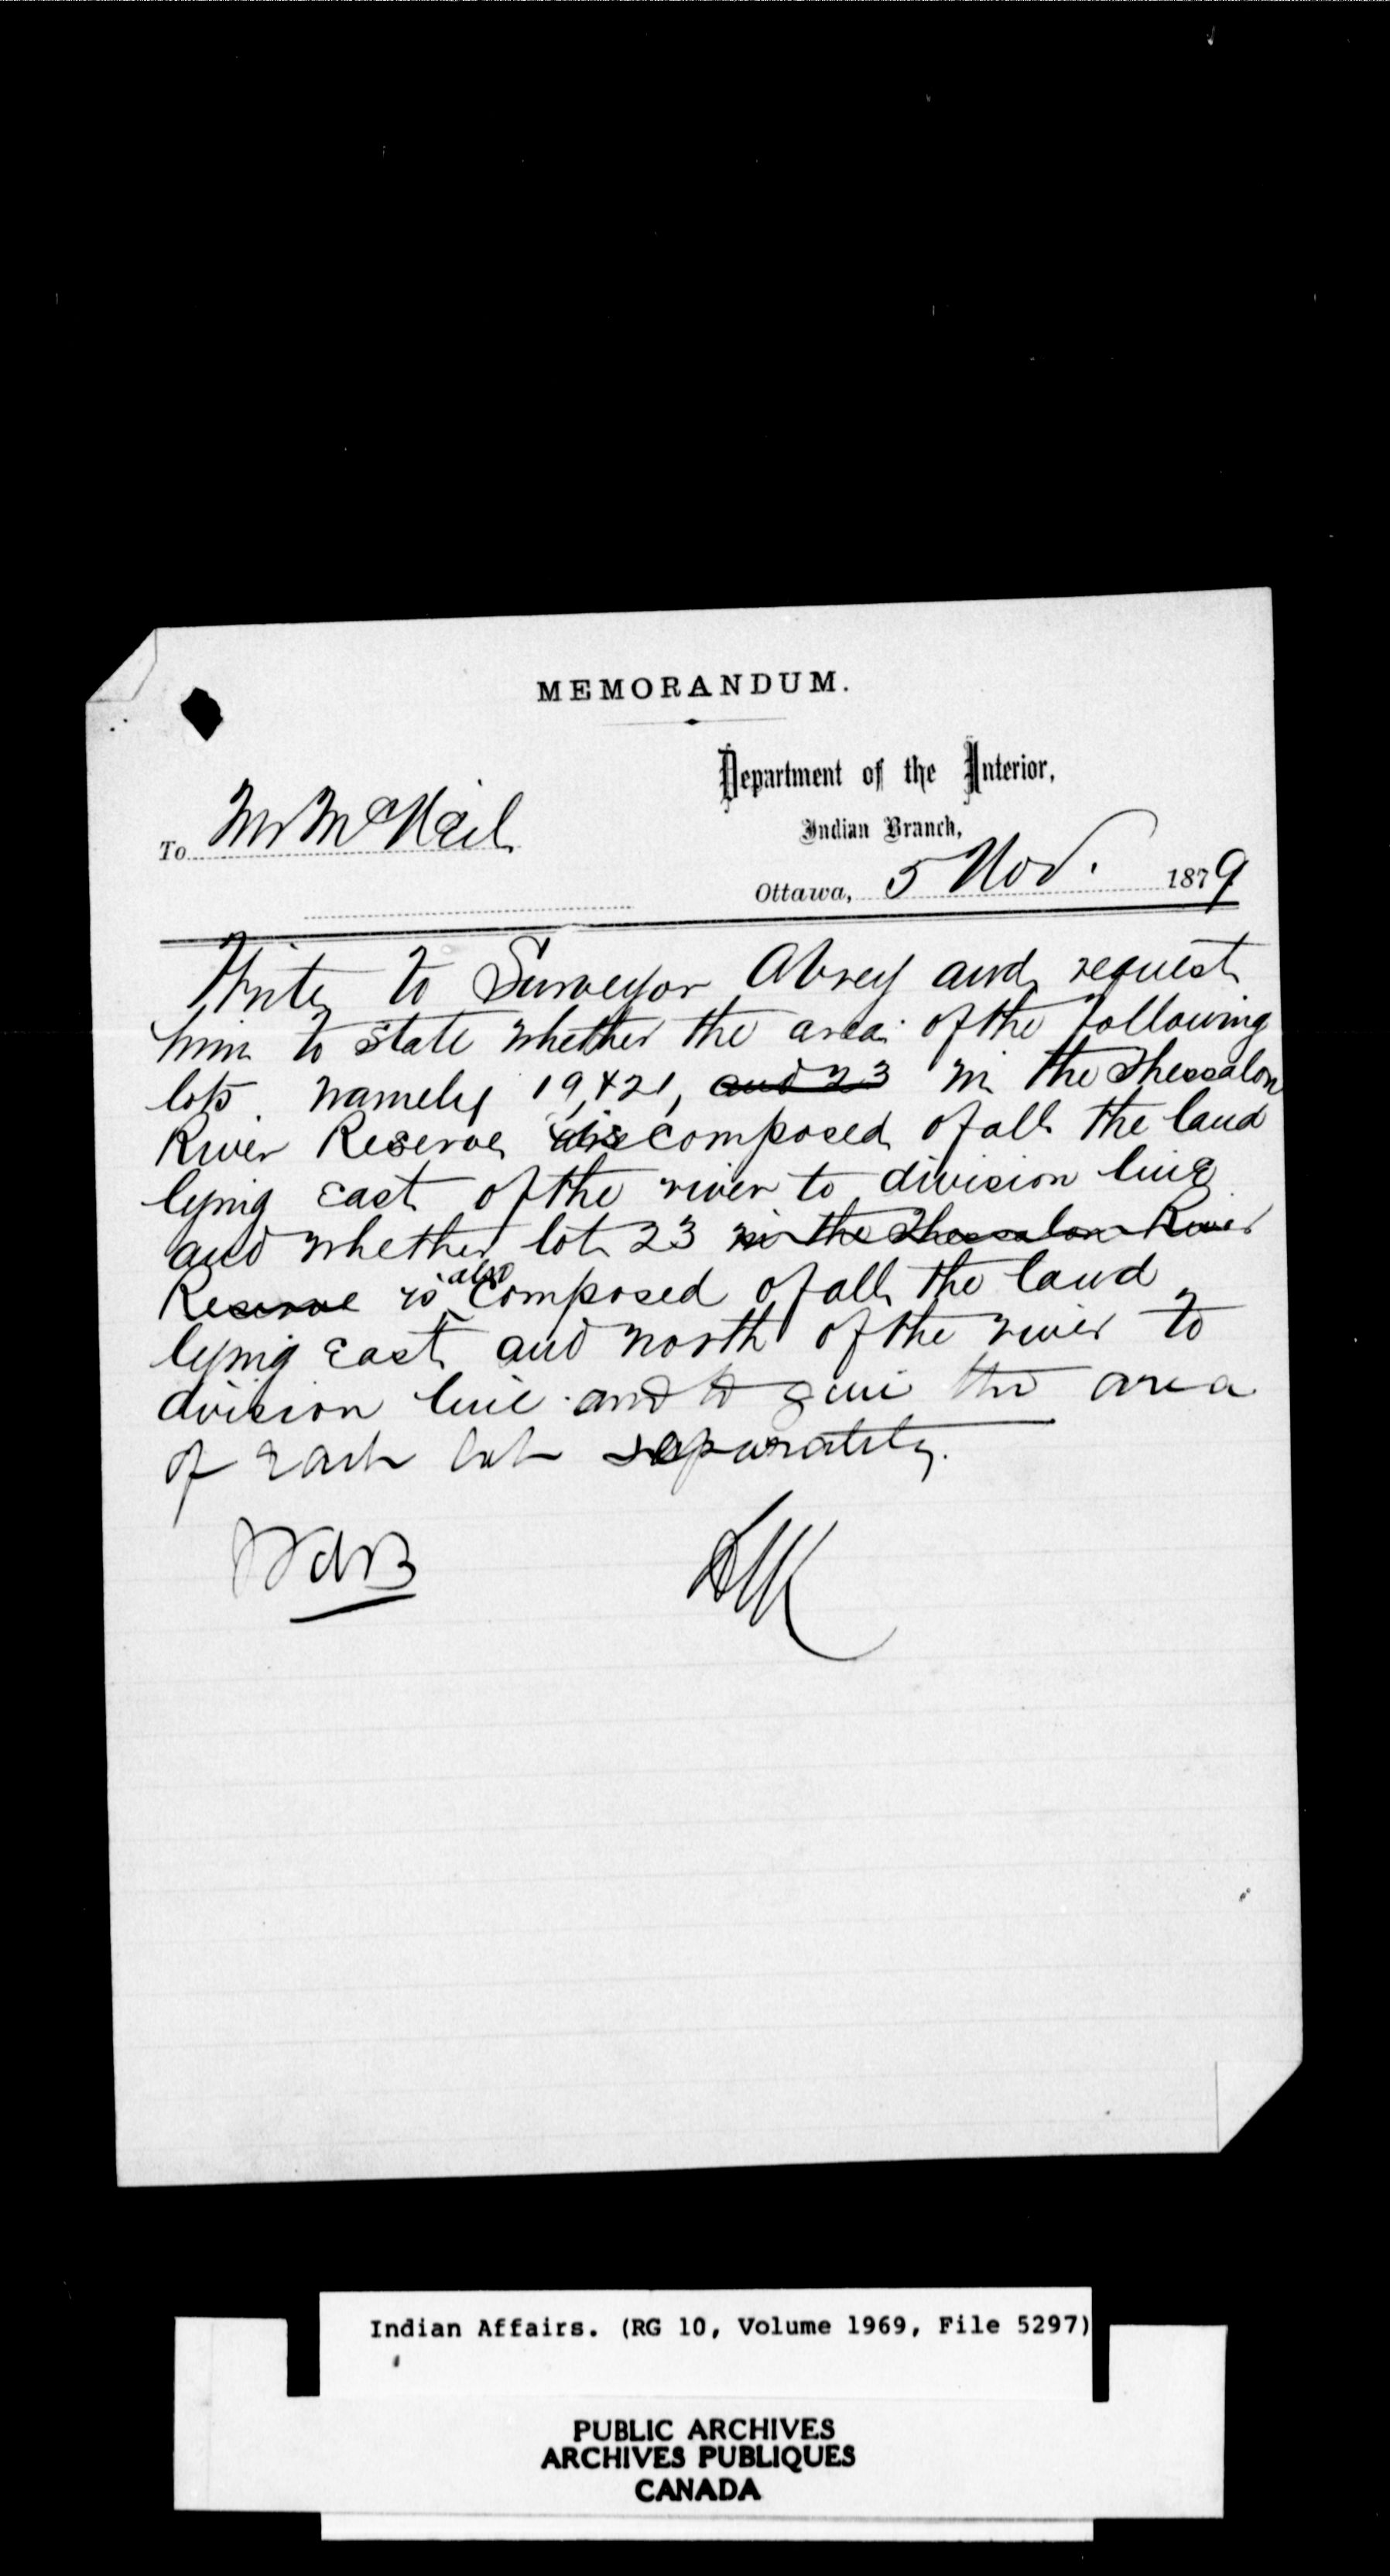 MEMORANDUM.
Department of the Interior,
Indian Branch,
To Mr McNeil
Ottawa, 5 Nov. 1879
Write to Surveyor Abrey and request
him to state whether the area of the following
lots namely 19, & 21, and 23 in the Thessalon
River Reserve is composed of all the land
lying East of the river to division line
and whether lot 23 in the Thessalon River
Reserve is also composed of all the land
lying East and north of the river to
division line and to give the area
of each lot separately.
Indian Affairs. (RG 10, Volume 1969, File 5297)
PUBLIC ARCHIVES
ARCHIVES PUBLIQUES
CANADA